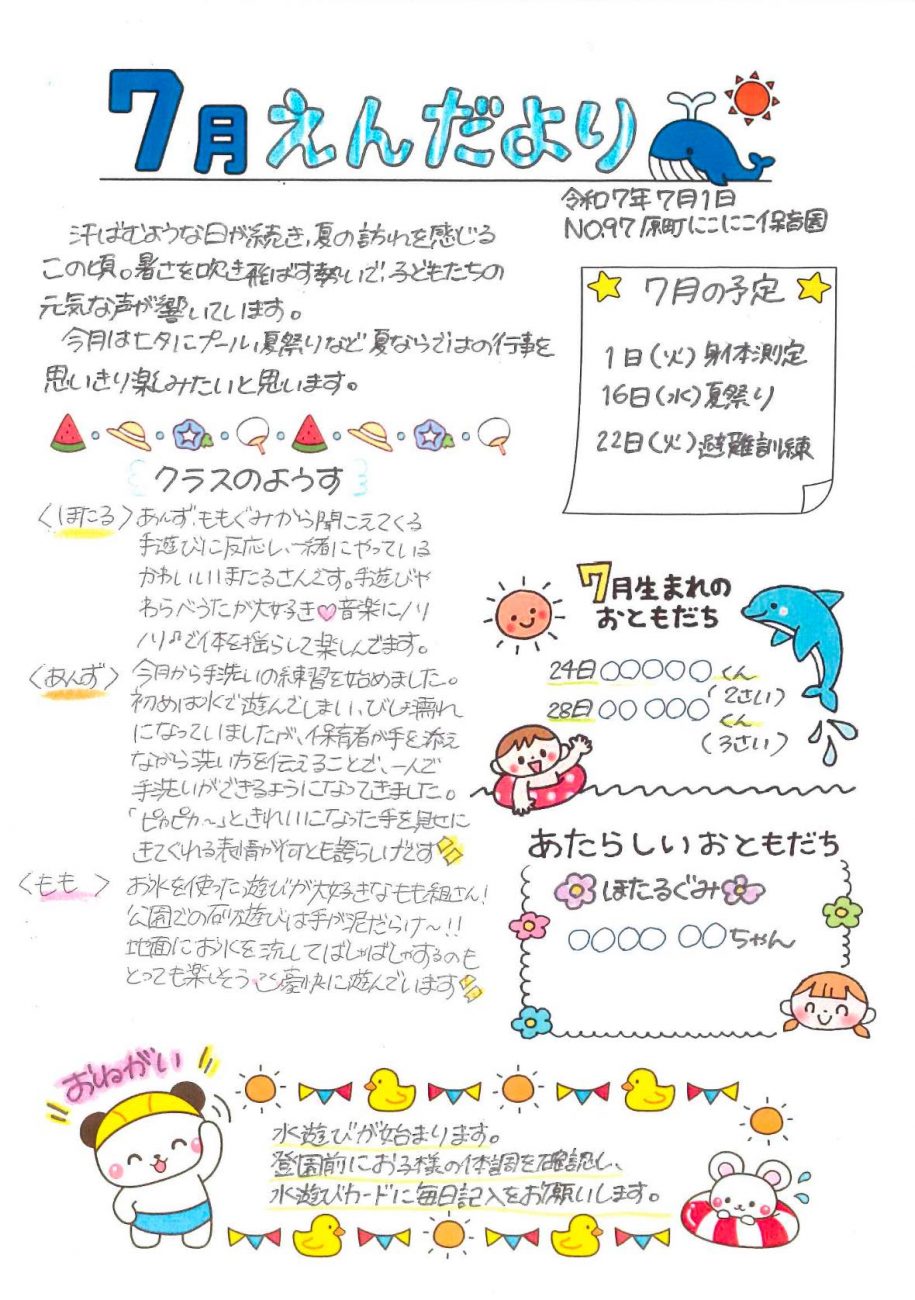 7月えんだより
令和7年7月1日
NO.97 原町にこにこ保育園
汗ばむような日が続き、夏の訪れを感じる
この頃。暑さを吹き飛ばす勢いで、子どもたちの
元気な声が響いています。
今月は七夕にプール、夏祭りなど夏ならではの行事を
思いきり楽しみたいと思います。
7月の予定
1日(火)身体測定
16日(水)夏祭り
22日(火)避難訓練
クラスのようす
〈ほたる〉あんず、ももぐみから聞こえてくる
手遊びに反応し、一緒にやっている
かわいいほたるさんです。手遊びや
わらべうたが大好き♡音楽にノリ
ノリ♪で体を揺らして楽しんでます。
〈あんず〉今月から手洗いの練習を始めました。
初めは水で遊んでしまい、びしょ濡れ
になっていましたが、保育者が手を添え
ながら洗い方を伝えることで、一人で
手洗いができるようになってきました。
「ピカピカ～」ときれいになった手を見せに
きてくれる表情が何とも誇らしげです
〈もも〉お水を使った遊びが大好きなもも組さん!
公園での砂遊びは手が泥だらけ～!!
地面にお水を流してばしゃばしゃするのも
とっても楽しそう 豪快に遊んでいます
7月生まれの
おともだち
24日○○○○○くん
(2さい)
28日○○ ○○○くん
(3さい)
あたらしいおともだち
ほたるぐみ
○○○○ ○○ちゃん
おねがい
水遊びが始まります。
登園前にお子様の体調を確認し、
水遊びカードに毎日記入をお願いします。